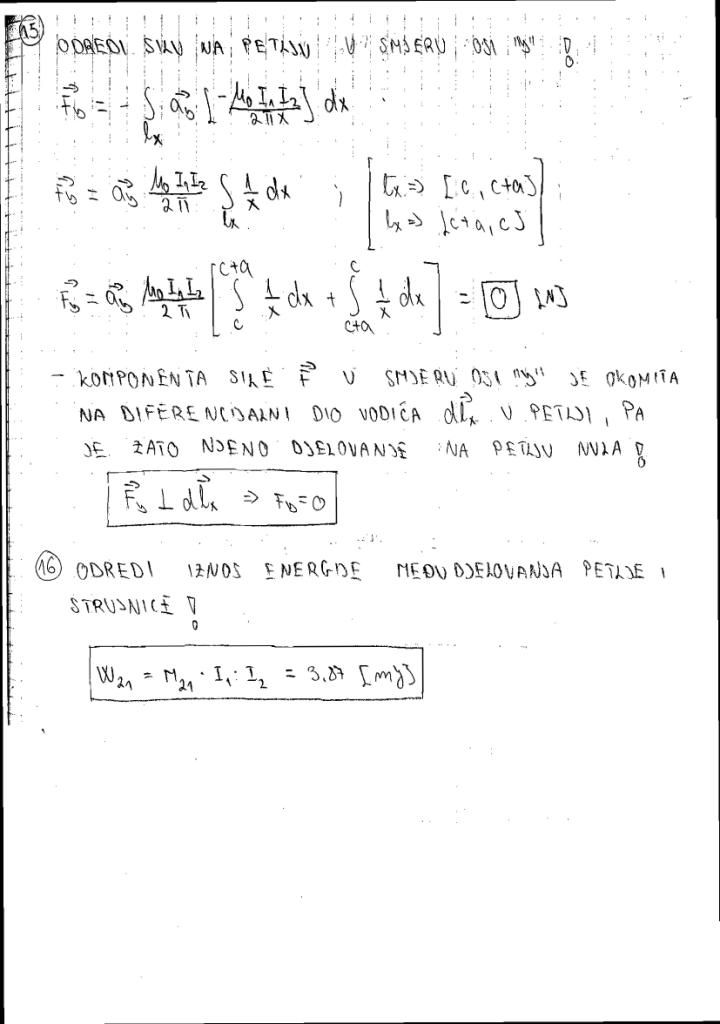 15 ODREDI SILU NA PETLJU U SMJERU OSI "y" !
F⃗y = - ∫lx a⃗y [-μ0 I1 I2 / 2πx] dx
F⃗y = a⃗y μ0 I1 I2 / 2π ∫lx 1/x dx ; [lx ⇒ [c, c+a]
lx ⇒ [c+a, c]] ;
F⃗y = a⃗y μ0 I1 I2 / 2π [∫c^c+a 1/x dx + ∫c+a^c 1/x dx] = 0 [N]
- KOMPONENTA SILE F⃗ U SMJERU OSI "y" JE OKOMITA
NA DIFERENCIJALNI DIO VODIČA dl⃗x U PETLJI, PA
JE ZATO NJENO DJELOVANJE NA PETLJU NULA !
F⃗y ⊥ dl⃗x ⇒ Fy=0
16 ODREDI IZNOS ENERGIJE MEĐUDJELOVANJA PETLJE I
STRUJNICE !
W21 = M21 · I1 · I2 = 3,87 [mJ]